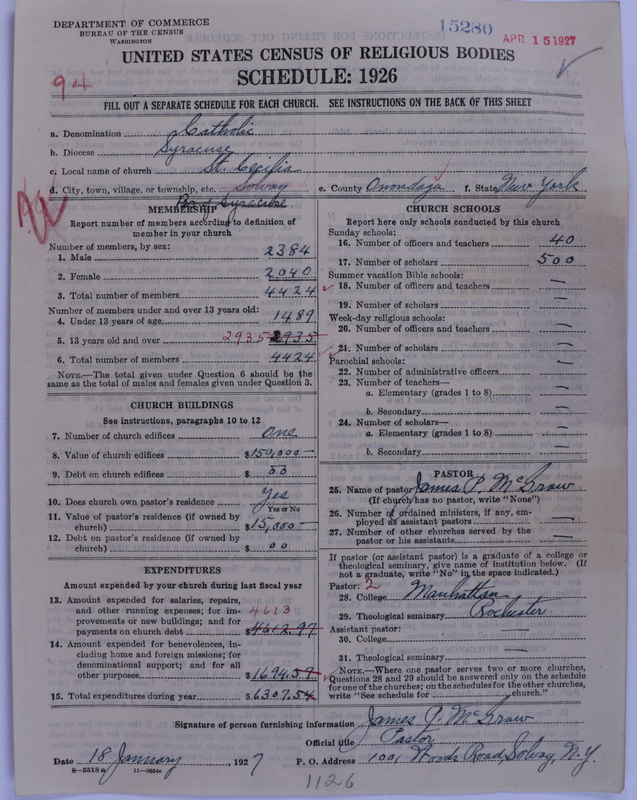 DEPARTMENT OF COMMERCE
BUREAU OF THE CENSUS
WASHINGTON
15280
APR 15 1927
UNITED STATES CENSUS OF RELIGIOUS BODIES
SCHEDULE: 1926
94
FILL OUT A SEPARATE SCHEDULE FOR EACH CHURCH. SEE INSTRUCTIONS ON THE BACK OF THIS SHEET
a. Denomination Catholic
b. Diocese Syracuse
c. Local name of church St. Cecilia
d. City, town, village, or township, etc. Solvay e. County Onondaga f. State New York
Syracuse
MEMBERSHIP
Report number of members according to definition of
member in your church
Number of members, by sex:
1. Male 2384
2. Female 2040
3. Total number of members 4424
Number of members under and over 13 years old:
4. Under 13 years of age 1489
5. 13 years old and over 2935 2935
6. Total number of members 4424
NOTE.—The total given under Question 6 should be the
same as the total of males and females given under Question 3.
CHURCH BUILDINGS
See instructions, paragraphs 10 to 12
7. Number of church edifices One
8. Value of church edifices $150,000—
9. Debt on church edifices $00
10. Does church own pastor's residence? Yes
Yes or No
11. Value of pastor's residence (if owned by
church) $15,000—
12. Debt on pastor's residence (if owned by
church) $00
EXPENDITURES
Amount expended by your church during last fiscal year
13. Amount expended for salaries, repairs,
and other running expenses; for im-
provements or new buildings; and for
payments on church debt 4613 $4612.97
14. Amount expended for benevolences, in-
cluding home and foreign missions; for
denominational support; and for all
other purposes $1694.57
15. Total expenditures during year $6307.54
CHURCH SCHOOLS
Report here only schools conducted by this church
Sunday schools:
16. Number of officers and teachers 40
17. Number of scholars 500
Summer vacation Bible schools:
18. Number of officers and teachers —
19. Number of scholars —
Week-day religious schools:
20. Number of officers and teachers —
21. Number of scholars —
Parochial schools:
22. Number of administrative officers —
23. Number of teachers—
a. Elementary (grades 1 to 8) —
b. Secondary —
24. Number of scholars—
a. Elementary (grades 1 to 8) —
b. Secondary —
PASTOR
25. Name of pastor James P. McGraw
(If church has no pastor, write "None")
26. Number of ordained ministers, if any, em-
ployed as assistant pastors —
27. Number of other churches served by the
pastor or his assistants —
If pastor (or assistant pastor) is a graduate of a college or
theological seminary, give name of institution below. (If
not a graduate, write "No" in the space indicated.)
Pastor: 2
28. College Manhattan
29. Theological seminary Rochester
Assistant pastor:
30. College —
31. Theological seminary —
NOTE.—Where one pastor serves two or more churches,
Questions 28 and 29 should be answered only on the schedule
for one of the churches; on the schedules for the other churches,
write "See schedule for church."
Signature of person furnishing information James P. McGraw
Official title Pastor
Date 18 January, 1927 P. O. Address 1001 Woods Road, Solvay, N.Y.
8—5518 a 11—9054a
1126